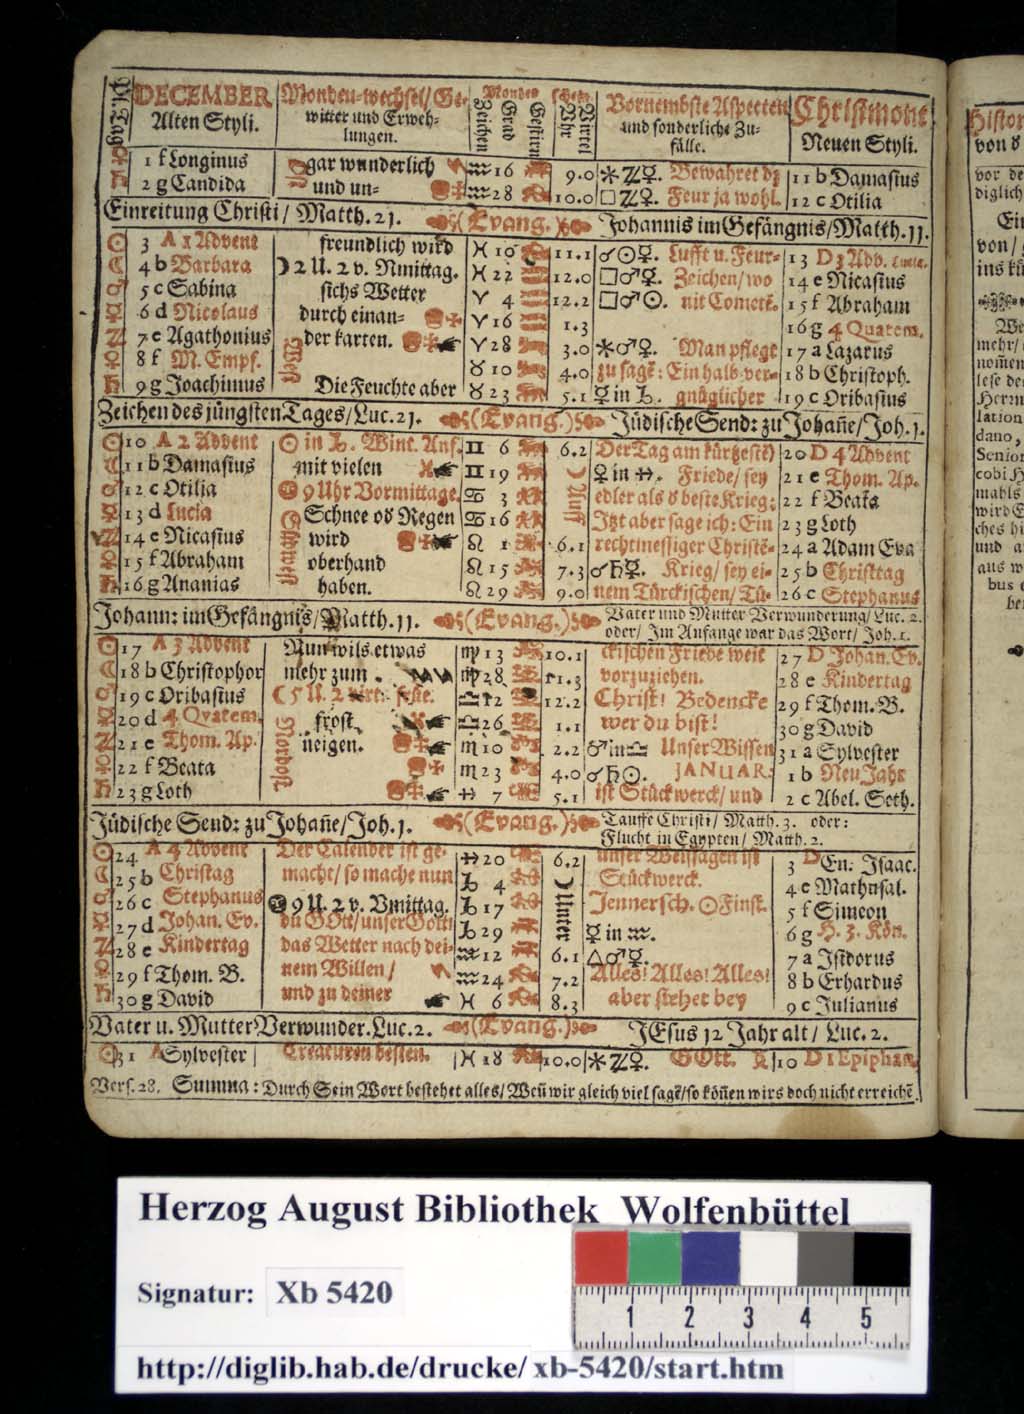 Pl. Tag | DECEMBER Alten Styli. | Monden-wechsel/ Ge- witter und Erweh- lungen. | Monden Zeichen Grad Gestirn | schein Vhr Viertel | Vornembste Aspecten und sonderliche Zu- fälle. | Christmont Neuen Styli.
♀ 1 f Longinus | gar wunderlich | ♒ 16 | 9.0 | ⚹♃☿. Bewahret dz | 11 b Damasius
♄ 2 g Candida | und un- | ♒ 28 | 10.0 | □♃♀. Feur ja wohl. | 12 c Otilia
Einreitung Christi/ Matth. 21. (Evang.) Johannis im Gefängnis/Matth. 11.
☉ 3 A 1 Advent | freundlich wird | ♓ 10 | 11.1 | ☌☉☿. Lufft u. Feur- | 13 D 3 Adv. Lucia.
☾ 4 b Barbara | ☽ 2 U. 2 v. Nmittag. | ♓ 22 | 12.0 | □♂☿. Zeichen/ wo | 14 e Nicasius
♂ 5 c Sabina | sichs Wetter | ♈ 4 | 12.2 | □♂☉. nit Cometē. | 15 f Abraham
☿ 6 d Nicolaus | durch einan- | ♈ 16 | 1.3 | 16 g 4 Quatem.
♃ 7 e Agathonius | der karten. | ♈ 28 | 3.0 | ⚹♂♀. Man pflegt | 17 a Lazarus
♀ 8 f M. Empf. | West | ♉ 10 | 4.0 | zu sagē: Ein halb ver- | 18 b Christoph.
♄ 9 g Joachimus | Die Feuchte aber | ♉ 23 | 5.1 | ☿ in ♑. gnüglicher | 19 c Oribasius
Zeichen des jüngsten Tages/Luc. 21. (Evang.) Jüdische Send: zu Johañe/Joh. 1.
☉ 10 A 2 Advent | ☉ in ♑. Wint. Anf. | ♊ 6 | 6.2 | Der Tag am kürtzestē | 20 D 4 Advent
☾ 11 b Damasius | mit vielen | ♊ 19 | ☾ Auff | ♀ in ♐. Friede/ sey | 21 e Thom. Ap.
♂ 12 c Otilia | 9 Uhr Vormittage. | ♋ 3 | edler als d beste Krieg: | 22 f Beata
☿ 13 d Lucia | Schnee od Regen | ♋ 16 | Itzt aber sage ich: Ein | 23 g Loth
♃ 14 e Nicasius | wird | ♌ 1 | 6.1 | rechtmessiger Christē- | 24 a Adam Eva
♀ 15 f Abraham | oberhand | ♌ 15 | 7.3 | ☌♄☿. Krieg/ sey ei- | 25 b Christtag
♄ 16 g Ananias | haben. | ♌ 29 | 9.0 | nem Türckischen/ Tü- | 26 c Stephanus
Johann: im Gefängnis/Matth. 11. (Evang.) Vater und Mutter Verwunderung/Luc. 2.
oder/ Im Anfange war das Wort/ Joh. 1.
☉ 17 A 3 Advent | Nun wils etwas | ♍ 13 | 10.1 | ckischen Friede weit | 27 D Johan. Ev.
☾ 18 b Christophor | mehr zum | ♍ 28 | 11.3 | vorzuziehen. | 28 e Kindertag
♂ 19 c Oribasius | ☾ 5 U. 2 virt. frue. | ♎ 12 | 12.2 | Christ! Bedencke | 29 f Thom. B.
☿ 20 d 4 Qvatem. | frost | ♎ 26 | 1.1 | wer du bist! | 30 g David
♃ 21 e Thom. Ap. | neigen. | ♏ 10 | 2.2 | ♂ in ♎ Unser Wissen | 31 a Sylvester
♀ 22 f Beata | Nordost | ♏ 23 | 4.0 | ☌♄☉. JANUAR. | 1 b Neu Jahr
♄ 23 g Loth | ♐ 7 | 5.1 | ist Stückwerck/ und | 2 c Abel. Seth.
Jüdische Send: zu Johañe/Joh. 1. (Evang.) Tauffe Christi/ Matth. 3. oder:
Flucht in Egypten/ Matth. 2.
☉ 24 A 4 Advent | Der Calender ist ge- | ♐ 20 | 6.2 | unser Weissagen ist | 3 D En: Isaac.
☾ 25 b Christag | macht/ so mache nun | ♑ 4 | ☾ Unter | Stückwerck. | 4 e Mathusal.
♂ 26 c Stephanus | 9 U. 2 v. Vmittag. | ♑ 17 | Jennersch. ☉ Finst. | 5 f Simeon
☿ 27 d Johan. Ev. | du GOtt/ unser Gott! | ♑ 29 | ☿ in ♒. | 6 g H. 3. Kön.
♃ 28 e Kindertag | das Wetter nach dei- | ♒ 12 | 6.1 | △♂☿. | 7 a Isidorus
♀ 29 f Thom. B. | nem Willen/ | ♒ 24 | 7.2 | Alles! Alles! Alles! | 8 b Erhardus
♄ 30 g David | und zu deiner | ♓ 6 | 8.3 | aber stehet bey | 9 c Julianus
Vater u. Mutter Verwunder. Luc. 2. (Evang.) JEsus 12 Jahr alt/ Luc. 2.
☉ 31 A Sylvester | Creaturen besten. | ♓ 18 | 10.0 | ⚹♃♀. GOtt. | 10 D 1 Epiphan.
Vers. 28. Summa: Durch Sein Wort bestehet alles/ Weñ wir gleich viel sagē/so köñen wirs doch nicht erreichē
Herzog August Bibliothek Wolfenbüttel
Signatur: Xb 5420
1 2 3 4 5
http://diglib.hab.de/drucke/ xb-5420/start.htm